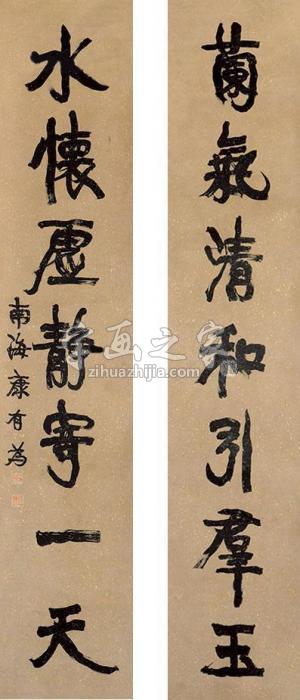 蘭氣清和引羣玉
水懷虛靜寄一天
南海康有為
字画之家
zihuazhijia.com